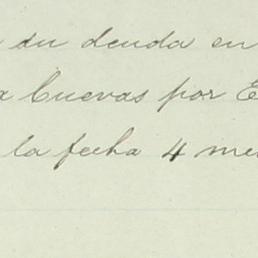 su deuda en
Cuevas por
la fecha 4